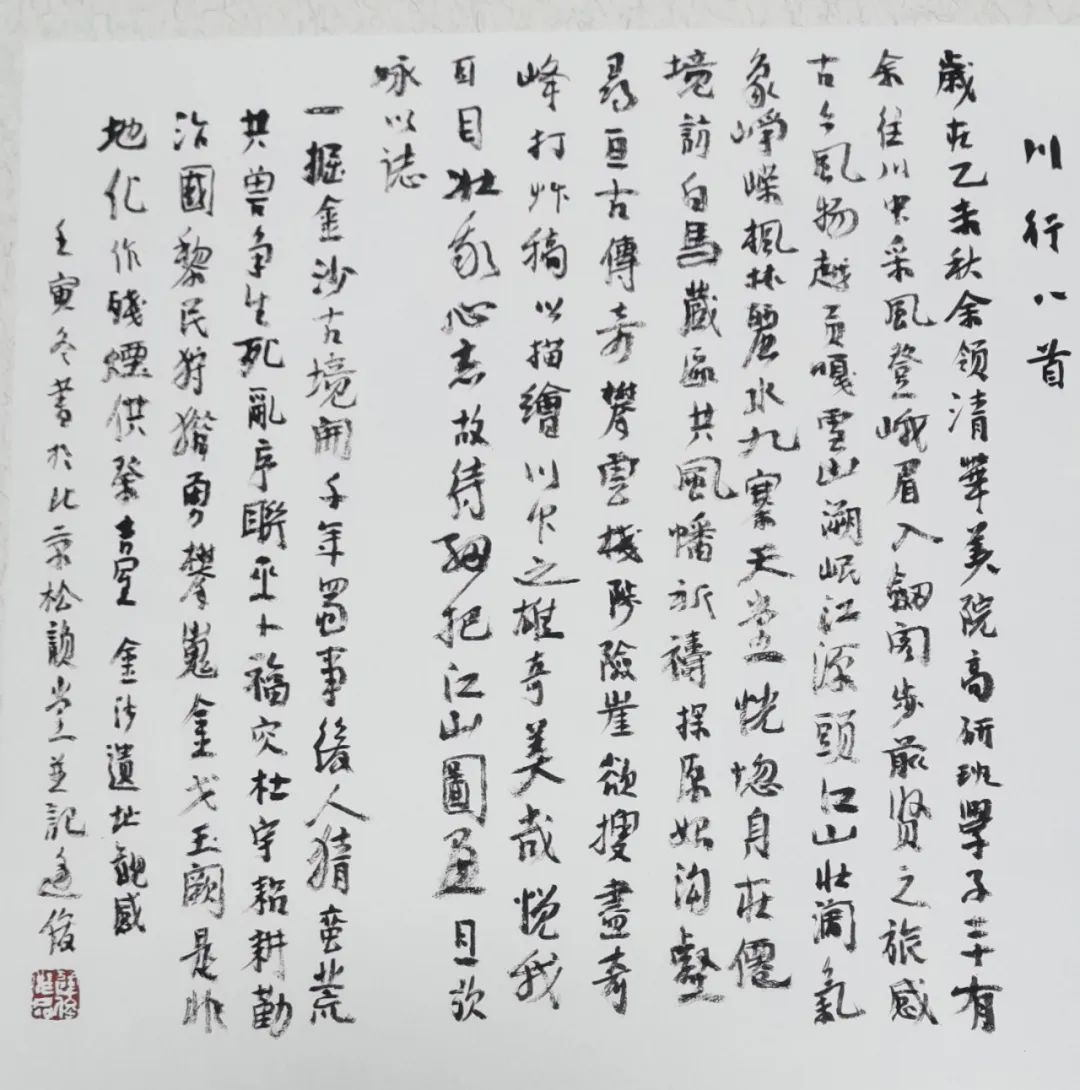 川行八首
歲在乙未秋余領清華美院高研班學子三十有
余往川中采風登峨眉入劍閣步前賢之旅感
古今風物越貢嘎雪山溯岷江源頭江山壯闊氣
象崢嶸楓林麗水九寨天堂恍惚身在僊
境訪白馬藏區共風幡祈禱探原始溝壑
尋亘古傳奇攀雲棧陟險崖欲搜盡奇
峰打艸稿以描繪川化之雄奇美哉悅我
耳目壯我心志故待細把江山圖畫且放
咏以誌
一掘金沙古境開千年蜀事後人猜蛮荒
共兽争生死亂序聯巫卜福灾杜宇稻耕勤
治國黎民狩獵勇攀嵬金戈玉闕是非
地化作殘煙供祭臺 金沙遺址觀感
壬寅冬書於北京松韻堂並記逢俊